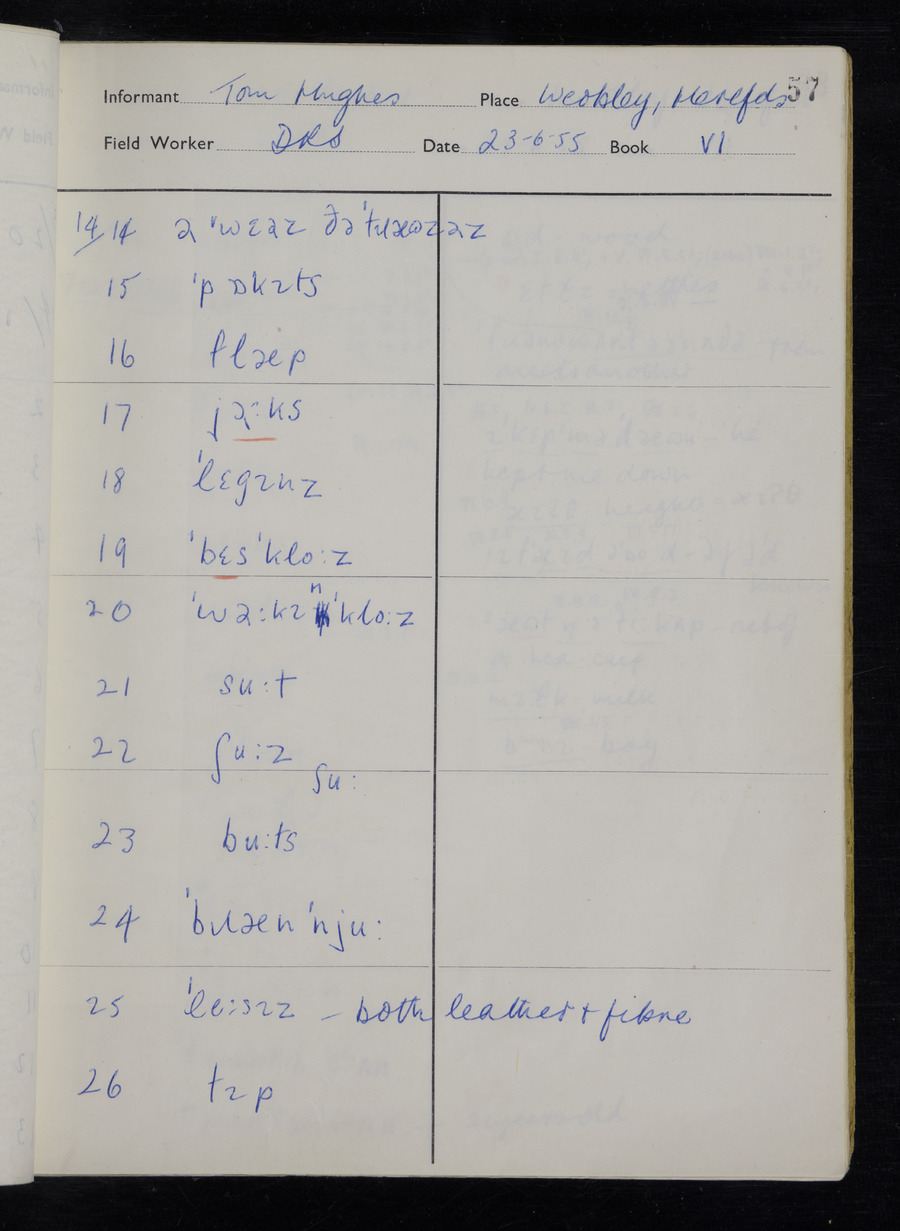 57
Informant Tom Hughes Place Weobley, Herefds
Field Worker DRS Date 23-6-55 Book VI
14/14 ə 'wɛəɹ ðə 'tɹaʊzəz
15 'pɒkɪts
16 flæp
17 jə:ks
18 'lɛgɪnz
19 'bɛs 'klo:z
20 'wə:kɪn 'klo:z
21 su:t
22 ʃu:z
ʃu:
23 bu:ts
24 'bɹæn 'nju:
25 'le:sɪz – both leather + fibre
26 tɪp